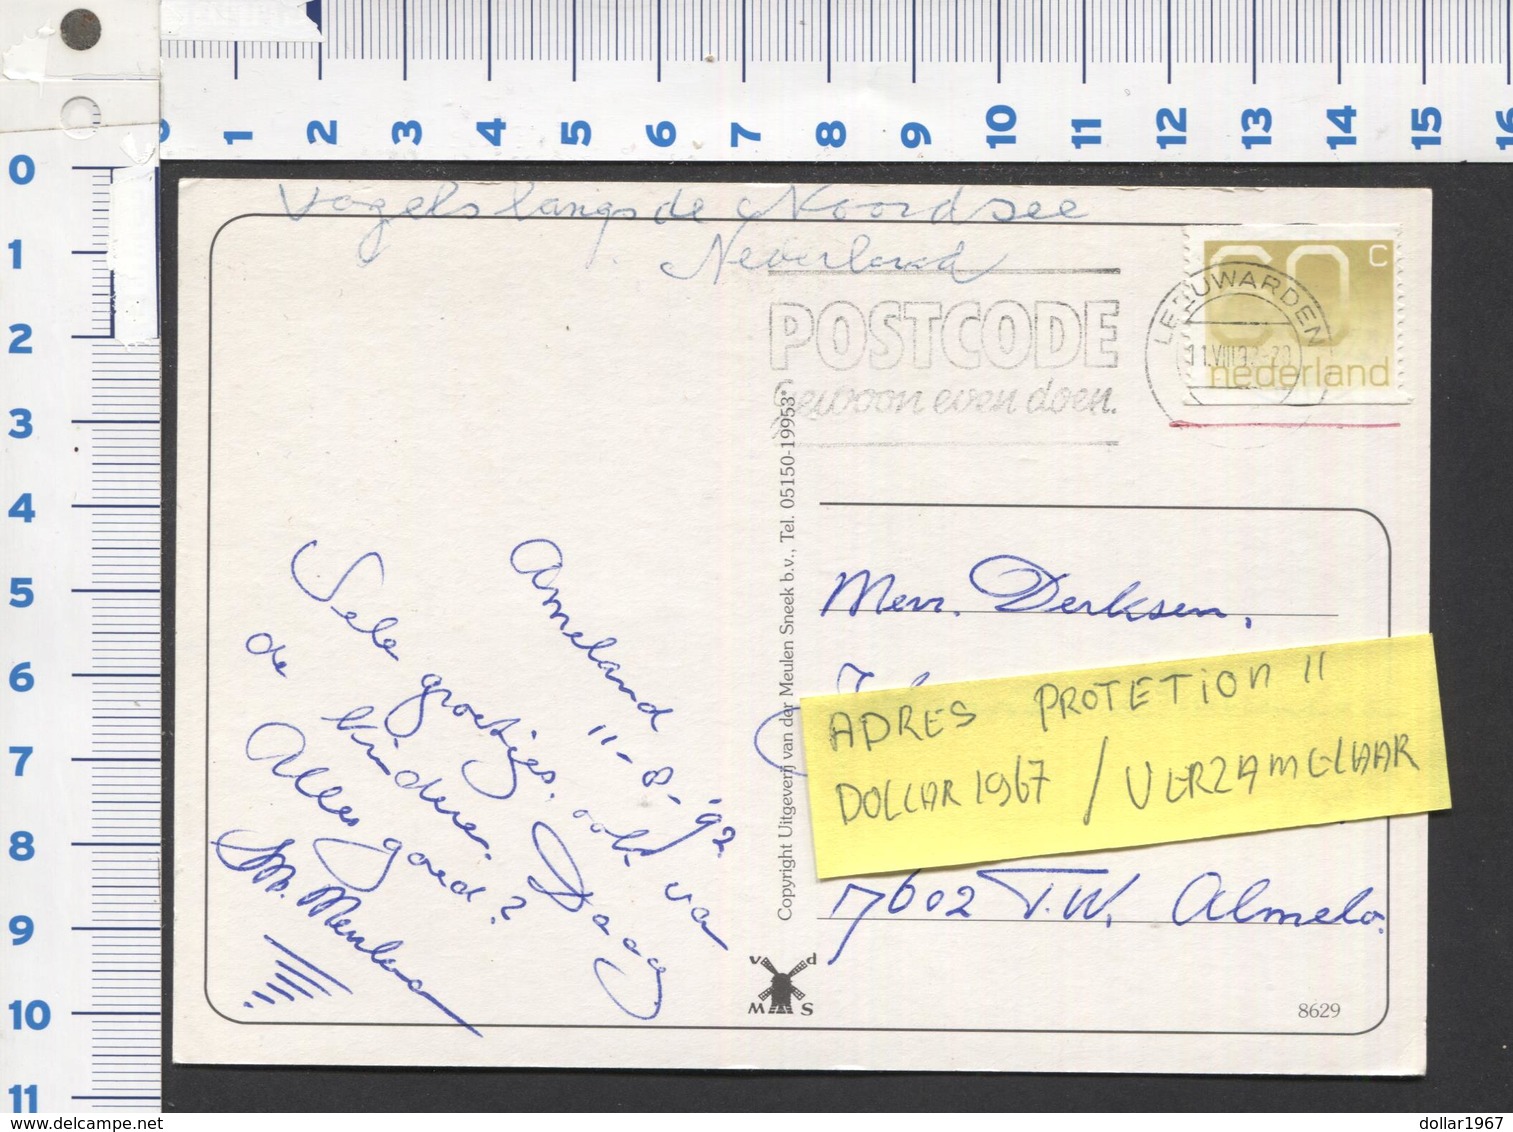 0 1 2 3 4 5 6 7 8 9 10 11 12 13 14 15 16
0
1
2
3
4
5
6
7
8
9
10
11
Vogels langs de Noordsee
Nederland
POSTCODE
Gewoon even doen.
LEEUWARDEN
11.VIII.92-20
60 C
nederland
Ameland
11-8-'92
Vele groetjes, ook van
de kinderen.
Alles goed? Daaag
Copyright Uitgeverij van der Meulen Sneek b.v., Tel. 05150-19953*
Mevr. Derksen,
ADRES PROTETION !!
DOLLAR1967 / VERZAMELAAR
7602 T.W. Almelo.
v d
M S
8629
delcampe.net
dollar1967